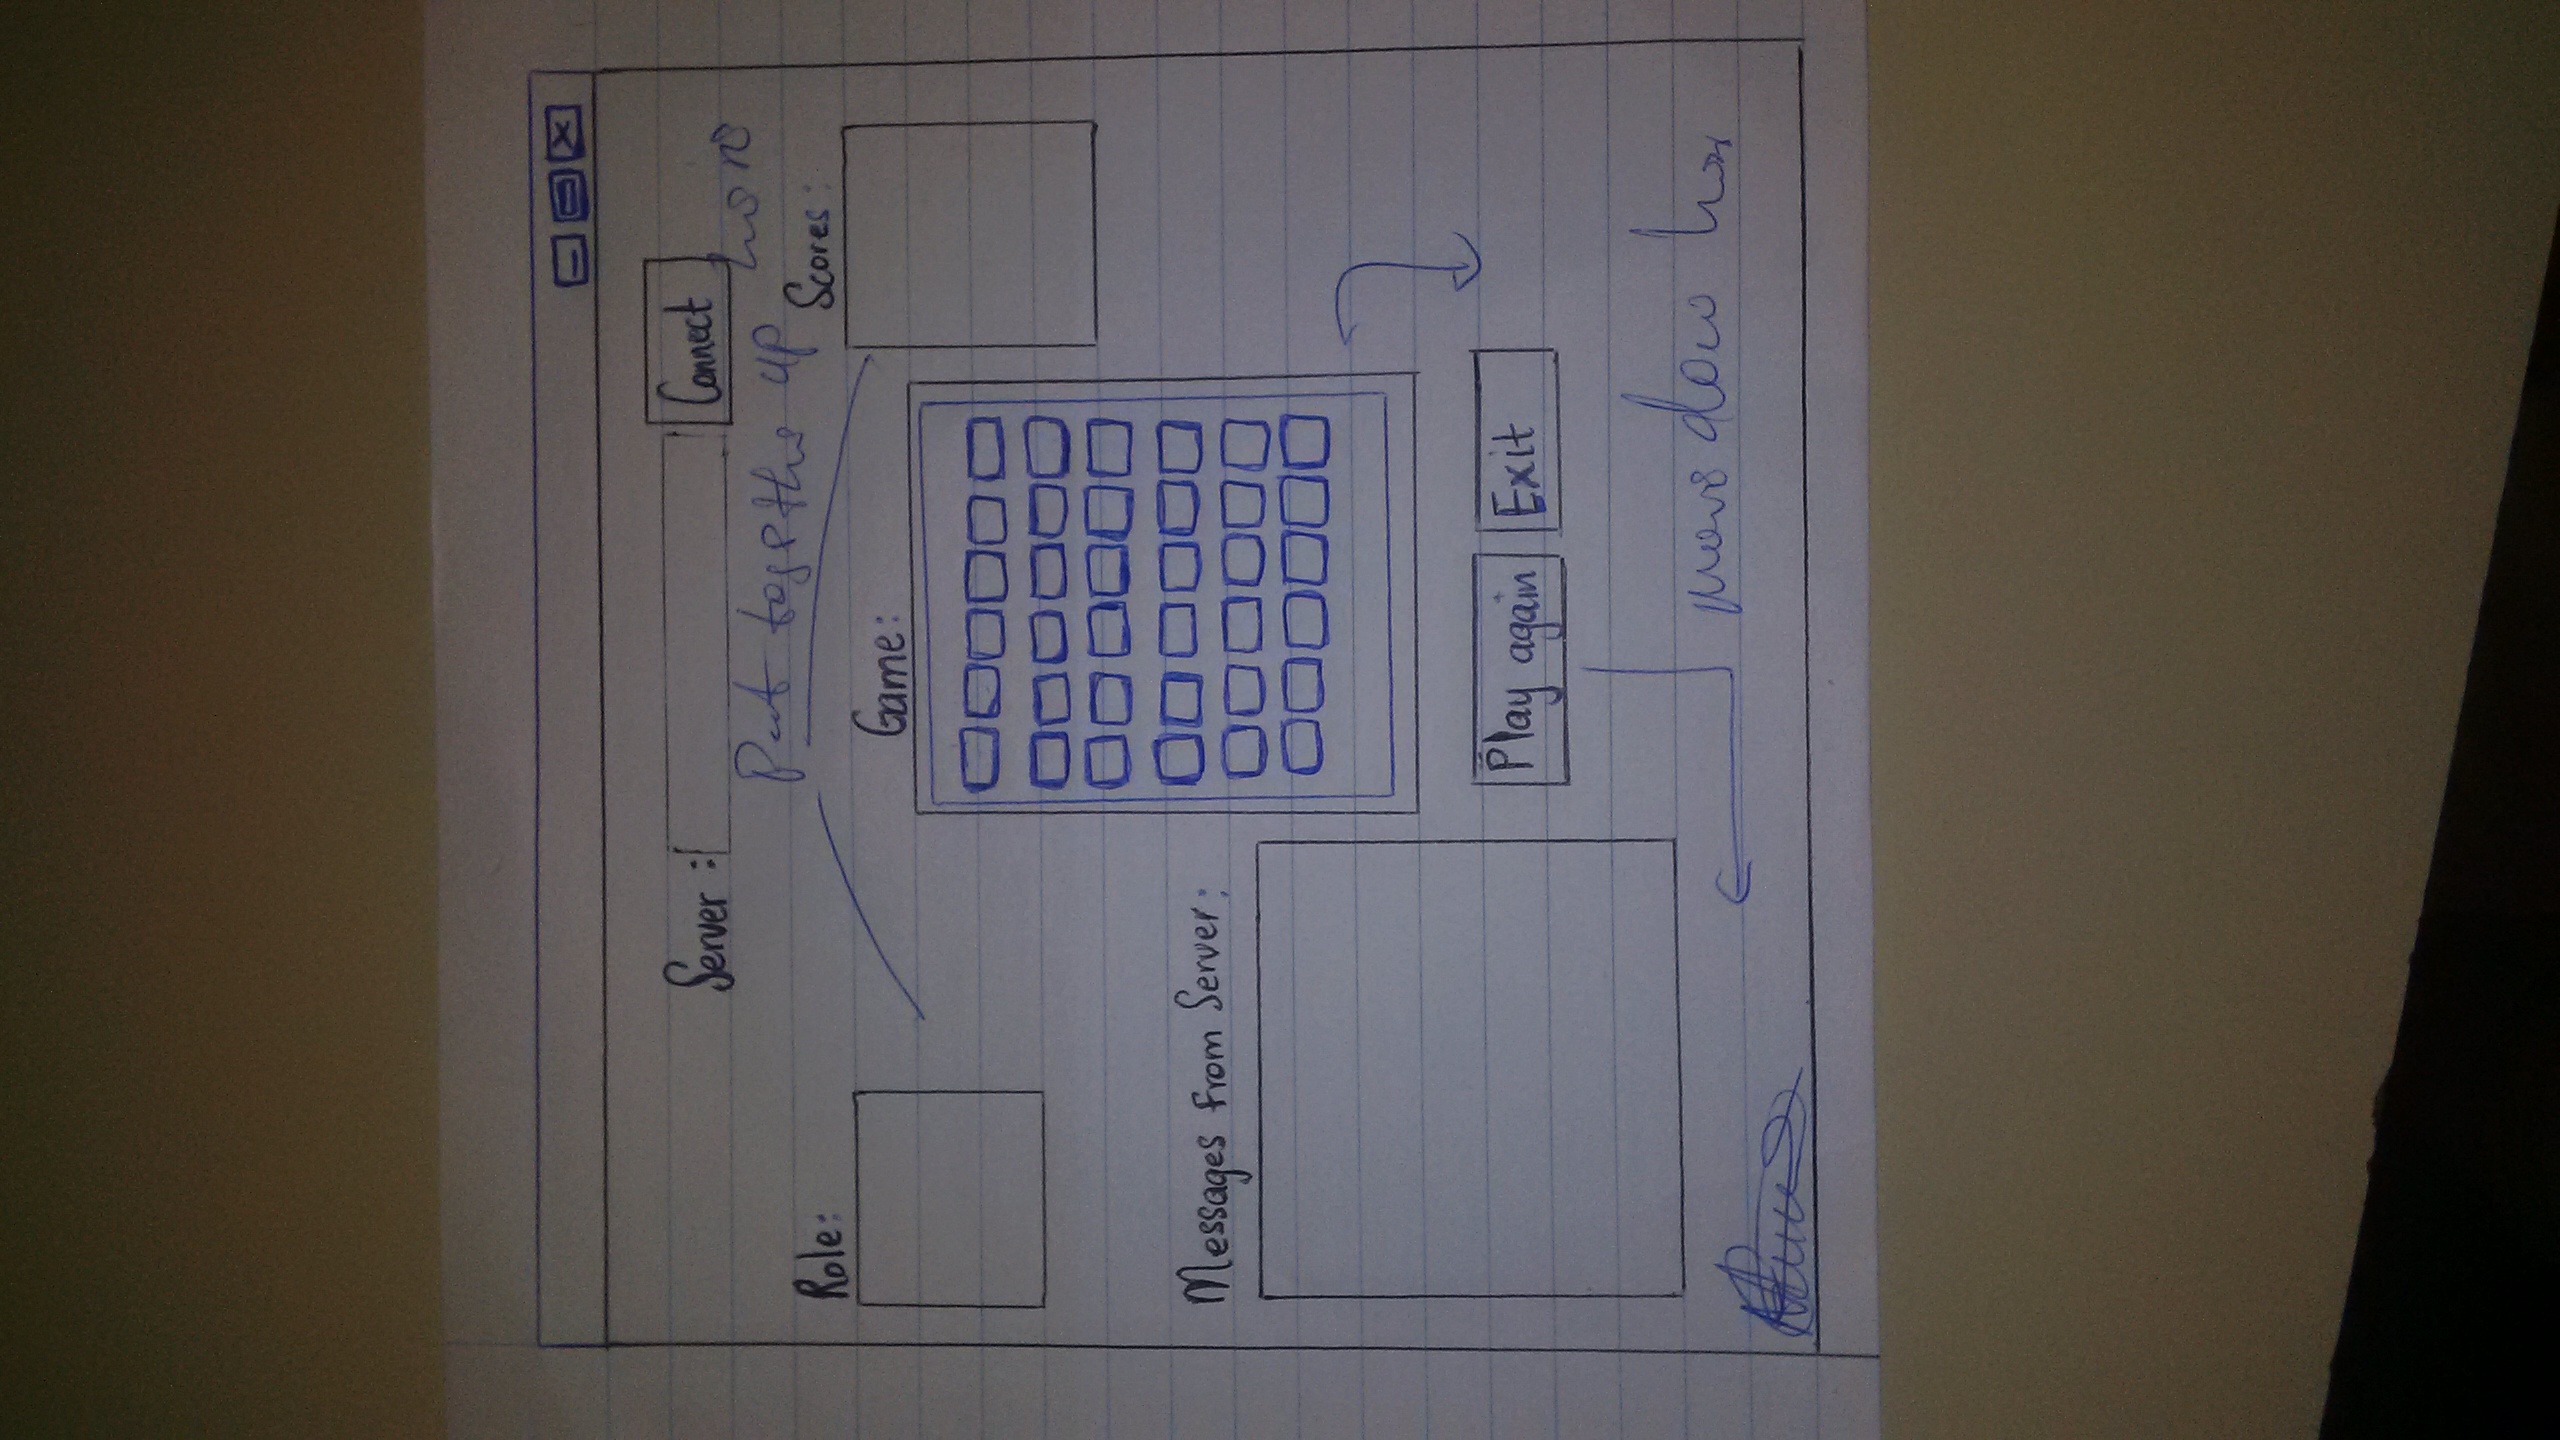 Server :
Connect
Put together up here
Role:
Scores:
Game:
Messages from Server:
Play again
Exit
move down here